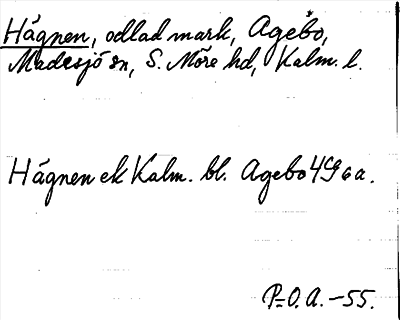 Hägnen, odlad mark, Agebo,
Madesjö sn, S. Möre hd, Kalm. l.
Hägnen ek Kalm. bl. Agebo 4G6a.
P-O.A. -55.